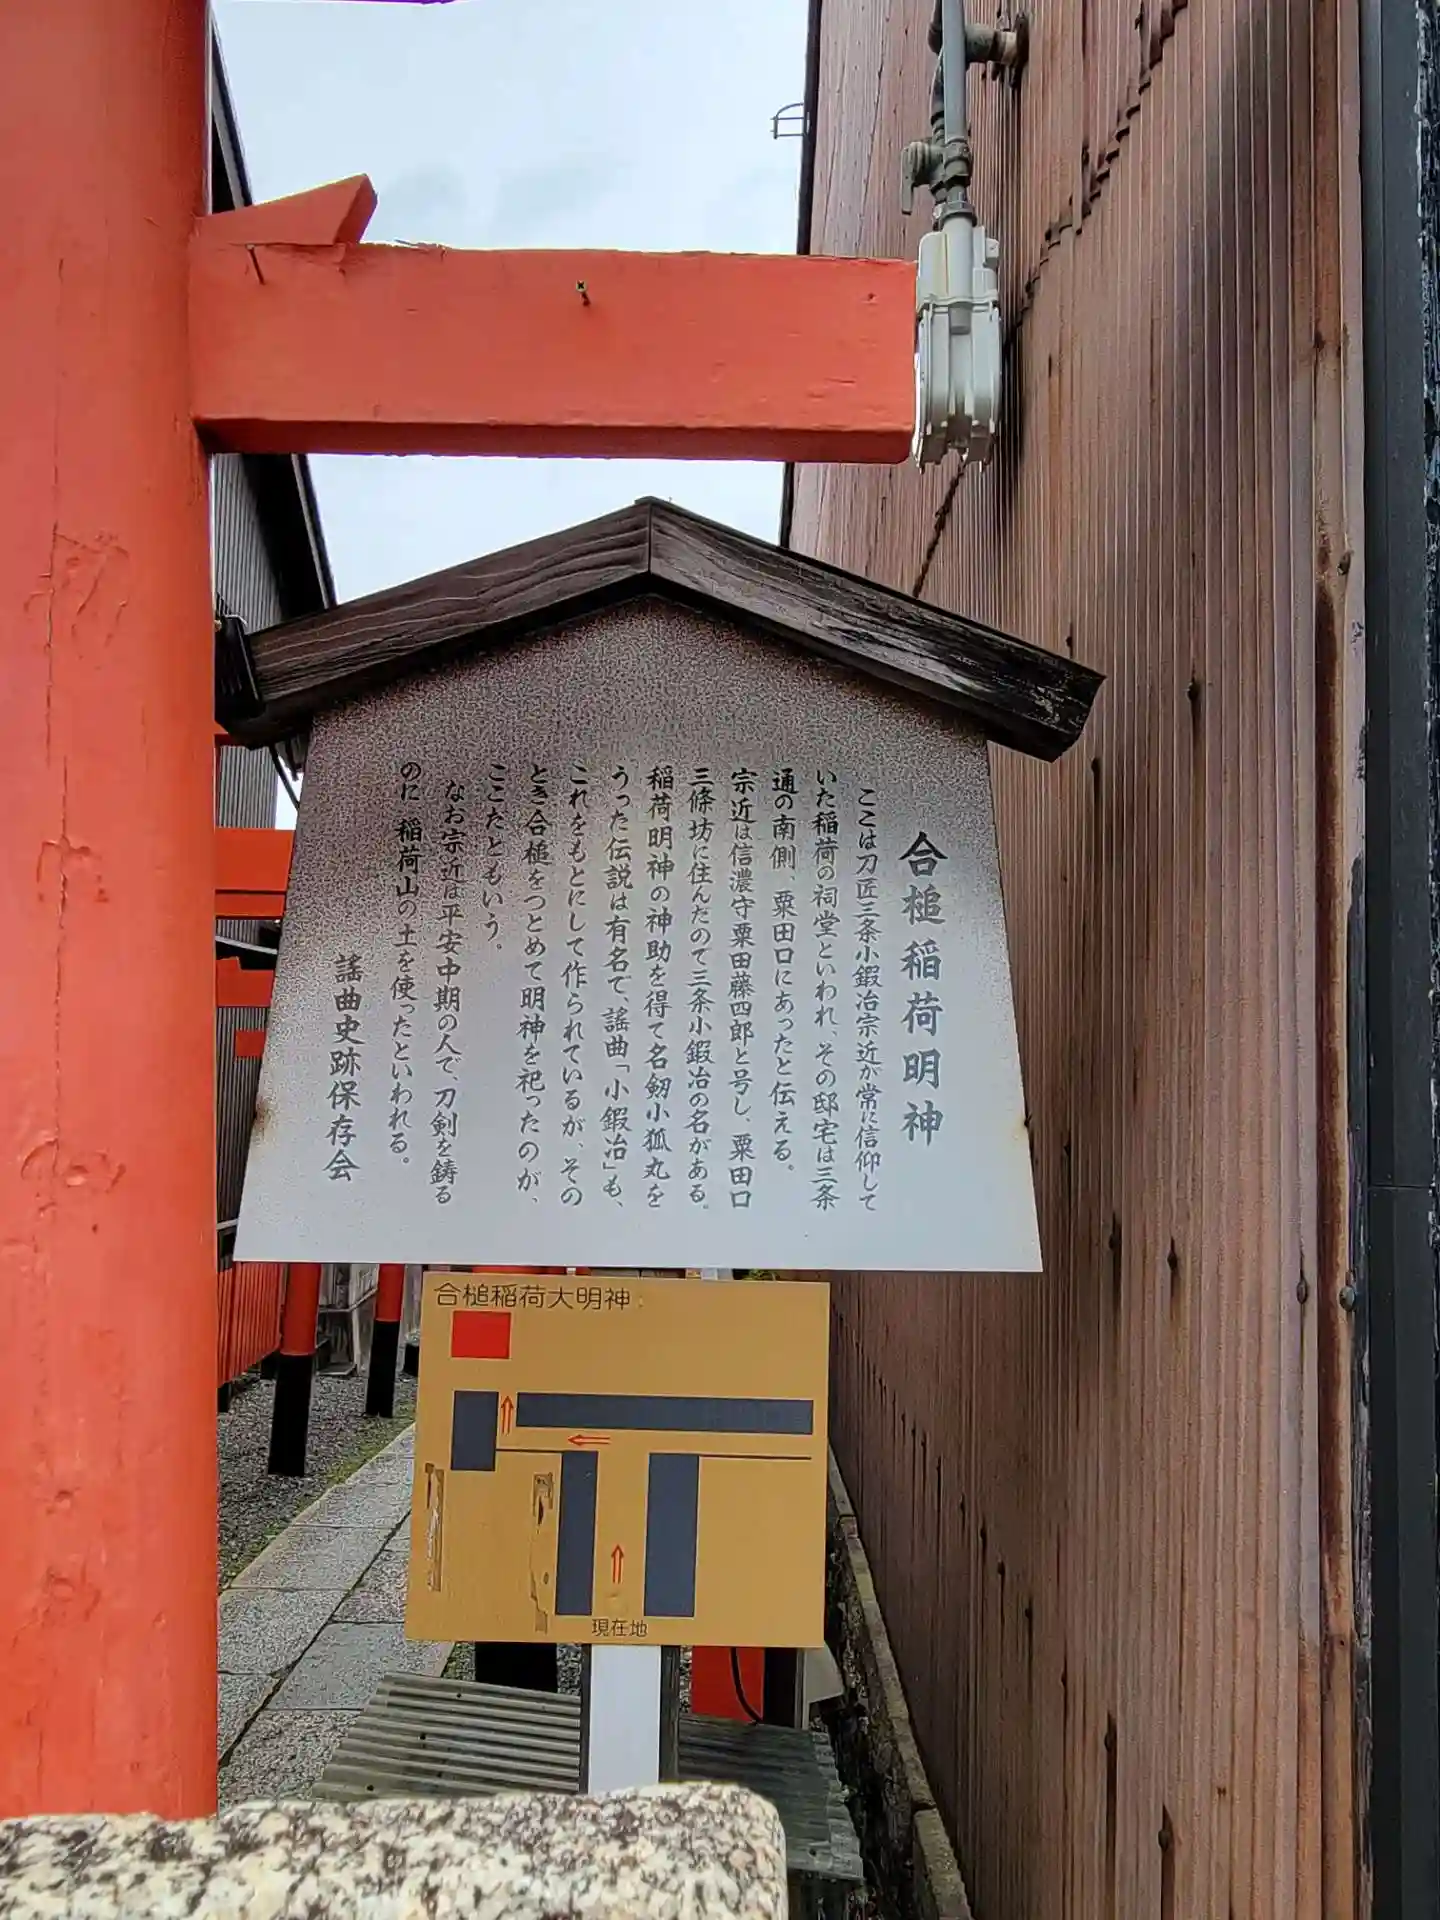 合槌稲荷明神
ここは刀匠三条小鍛冶宗近が常に信仰して
いた稲荷の祠堂といわれ、その邸宅は三条
通の南側、粟田口にあったと伝える。
宗近は信濃守粟田藤四郎と号し、粟田口
三條坊に住んだので三条小鍛冶の名がある。
稲荷明神の神助を得て名剱小狐丸を
うった伝説は有名で、謡曲「小鍛冶」も、
これをもとにして作られているが、その
とき合槌をつとめて明神を祀ったのが、
ここだともいう。
なお宗近は平安中期の人で、刀剣を鋳る
のに稲荷山の土を使ったといわれる。
謡曲史跡保存会
合槌稲荷大明神
現在地